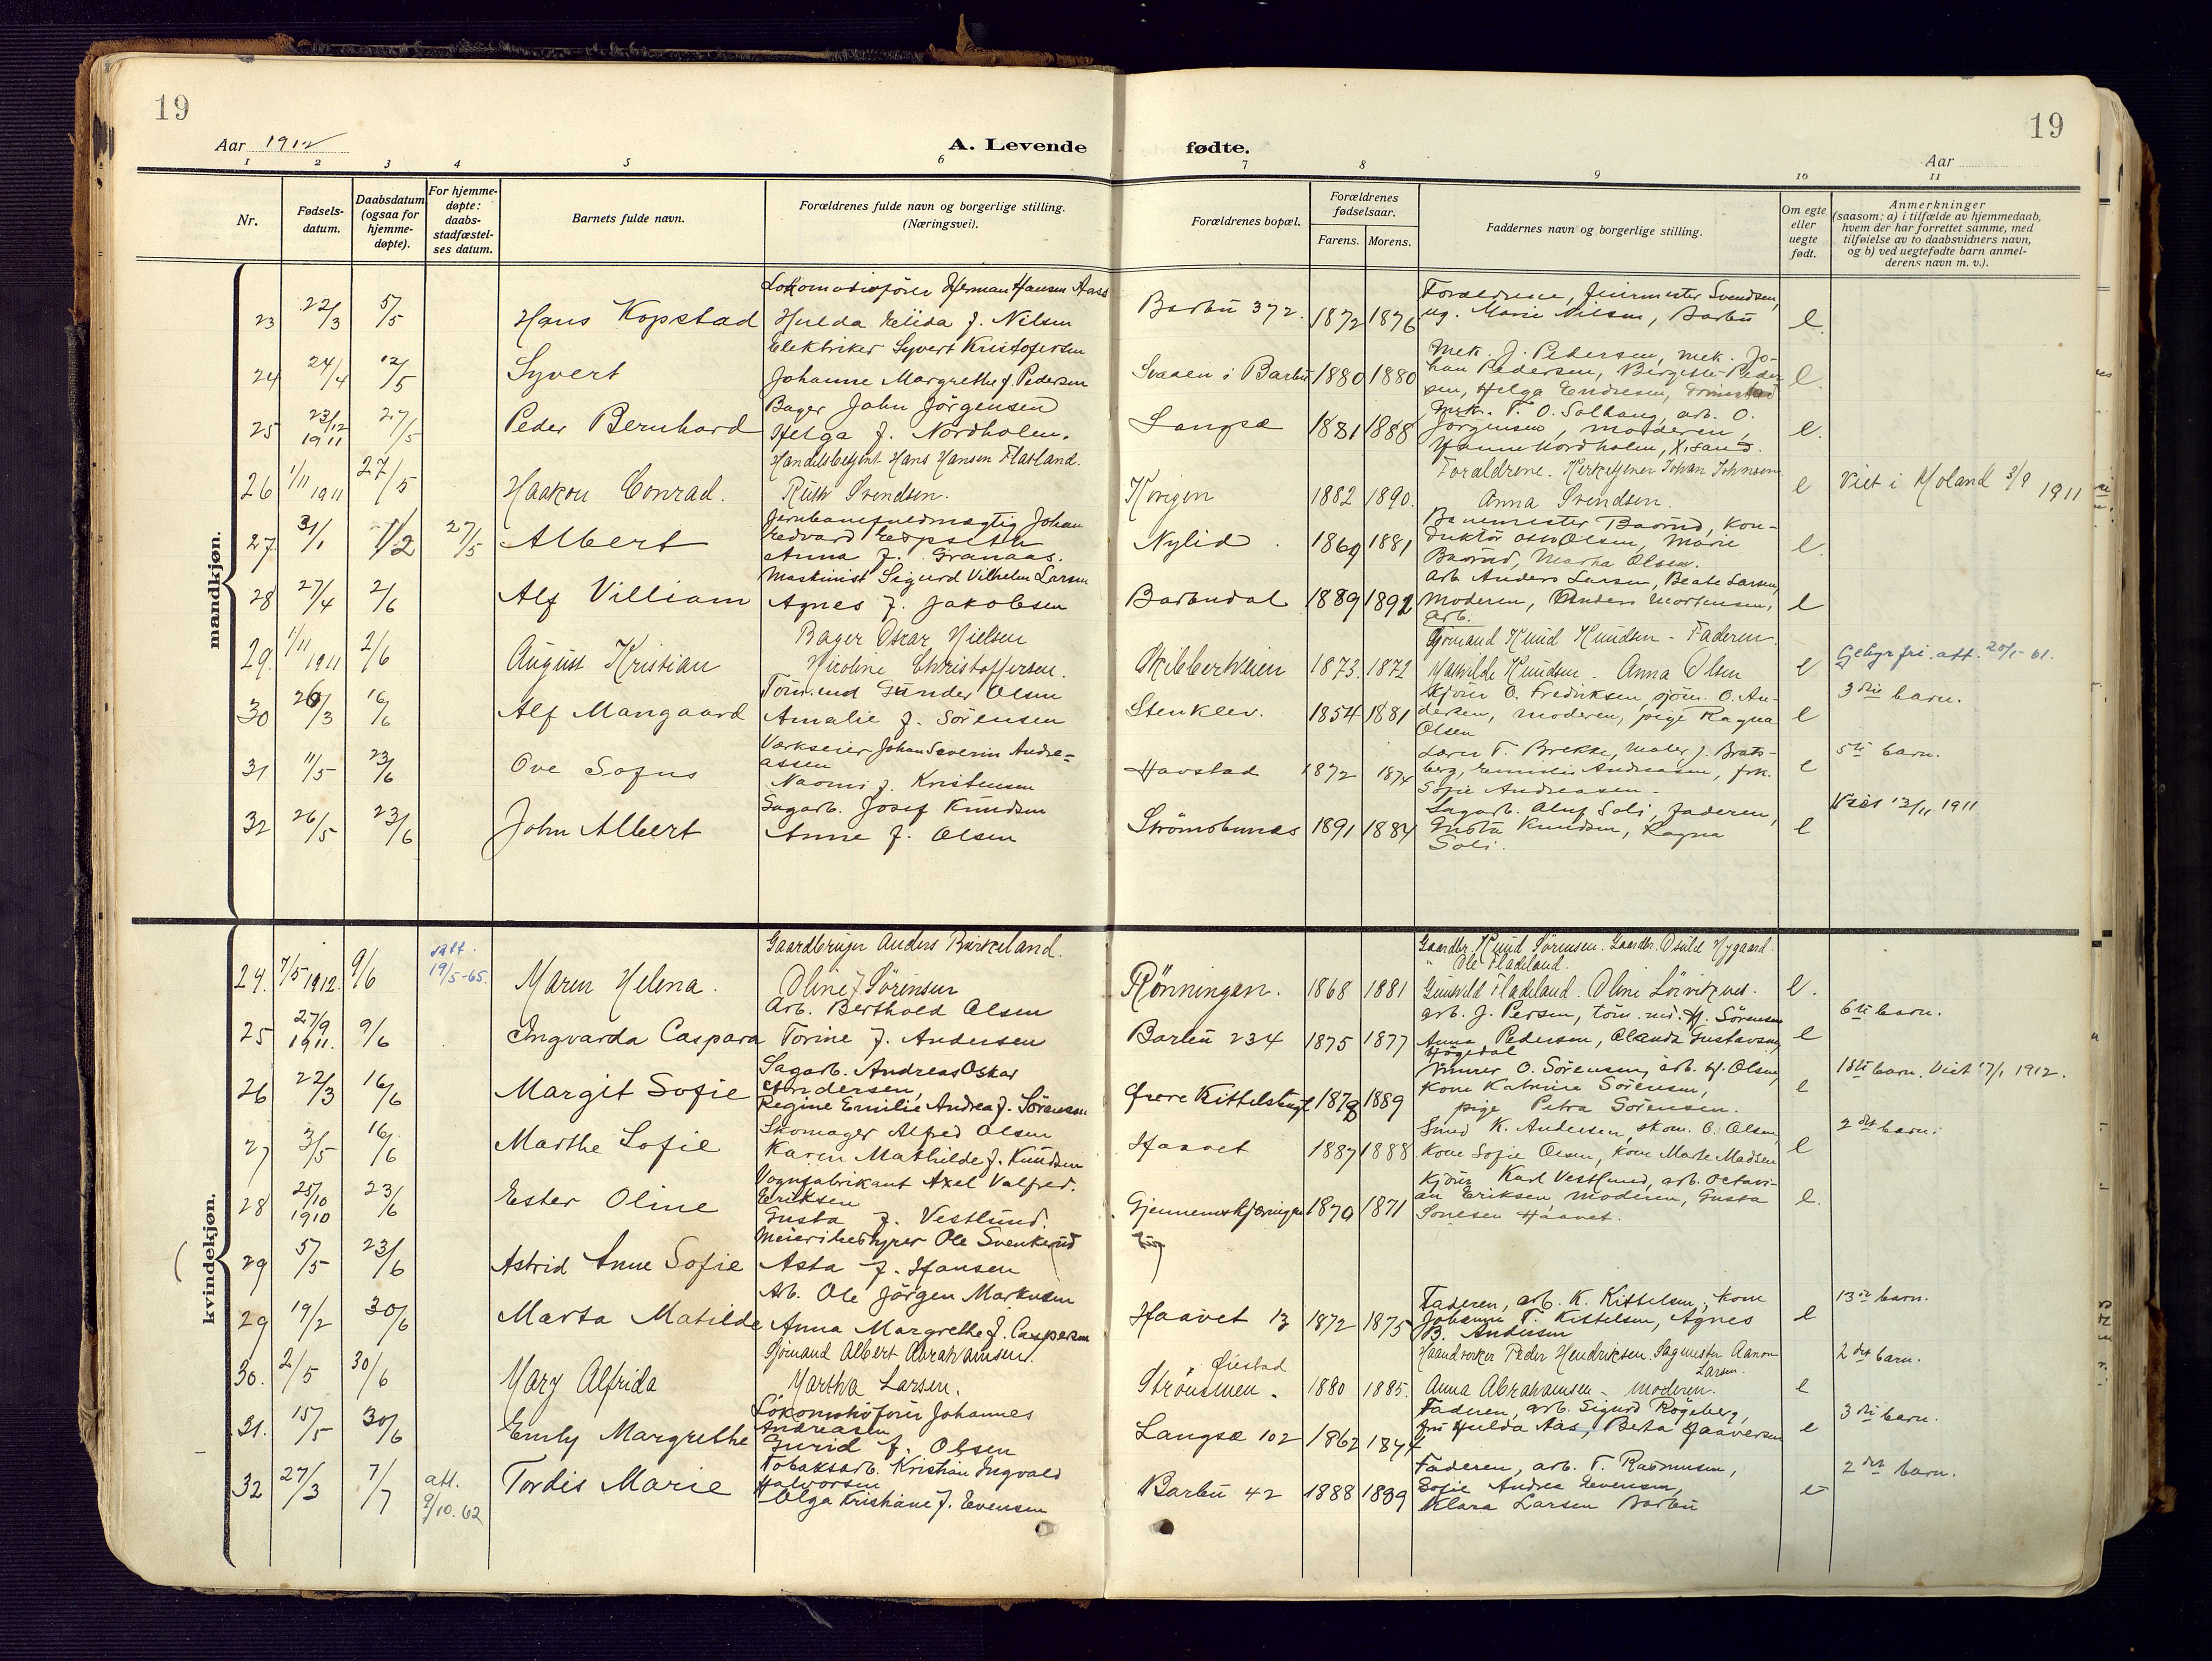 19
19
Aar 1912
A. Levende
fødte.
Aar
1 2 3 4 5 6 7 8 9 10 11
Nr.
Fødsels-
datum.
Daabsdatum
(ogsaa for
hjemme-
døpte).
For hjemme-
døpte:
daabs-
stadfæstel-
ses datum.
Barnets fulde navn.
Forældrenes fulde navn og borgerlige stilling.
(Næringsvei).
Forældrenes bopæl.
Forældrenes
fødselsaar.
Farens. Morens.
Faddernes navn og borgerlige stilling.
Om egte
eller
uegte
født.
Anmerkninger
(saasom: a) i tilfælde av hjemmedaab,
hvem der har forrettet samme, med
tilføielse av to daabsvidners navn,
og b) ved uegtefødte barn anmel-
derens navn m. v.).
mandkjøn.
23 22/3 5/5 Hans Kopstad
Lokomotivfører Herman Hansen Aass
Hulda Elida f. Nilsen
Barbu 372. 1872 1876
Forældrene, feiermester Svendsen,
ug. Marie Nilsen, Barbu
e.
24 24/4 12/5 Syvert
Elektriker Syvert Kristofersen
Johanne Margrethe f. Pedersen
Svaaen i Barbu 1880 1880
Mek. J. Pedersen, mek. Jo-
han Pedersen, Birgitte Peder-
sen, Helga Endresen, Grimstad
e.
25 23/12 1911 27/5 Peder Bernhard
Bager John Jörgensen
Helga f. Nordholm.
Langsæ 1881 1888
T. O. Solhaug, arb. O.
Jörgensen, moderen,
Hanne Nordholm, X.sand.
e.
26 1/11 1911 27/5 Haakon Conrad.
Handelsbetjent Hans Hansen Flatland.
Ruth Svendsen.
Krigen 1882 1890.
Forældrene. Kirketjener Johan Johnsen
Anna Svendsen.
e
Viet i Holand 3/9 1911
27 31/1 1/2 27/5 Albert
Jernbanefuldmægtig Johan
Edvard Espseth
Anna f. Granaas.
Nylid. 1869 1881
Banemester Baarud, kon-
duktör Olsen, Marie
Baarud, Martha Olsen.
e.
28 27/4 2/6 Alf Villiam
Maskinist Sigurd Vilhelm Larsen
Agnes f. Jakobsen
Barbudal 1889 1892
Arb. Anders Larsen, Beate Larsen,
moderen, Anders Mortensen,
arb.
e
29. 1/11 1911 2/6 August Kristian
Bager Oskar Nielsen
Nicoline Christoffersen.
Skibberheien 1873. 1872
Sjömand Knud Knudsen - Faderen
Mathilde Knudsen - Anna Olsen
e
Gebyrfri att. 20/1-61.
30 26/3 16/6 Alf Mangaard
Tömmermd Gunder Olsen
Amalie f. Sörensen
Stenklev. 1854 1881
Kjörer O. Fredriksen, sjöm. O. An-
dersen, moderen, pige Ragna
Olsen
e
3die barn.
31 11/5 23/6 Ove Sofus
Værkseier Johan Severin Andre-
assen
Naomi f. Kristensen
Havstad 1872 1874
Lærer T. Brekke, maler J. Brats-
berg, Emilie Andreasen, frk.
Sofie Andreasen -
e
5te barn.
32 26/5 23/6 John Albert
Sagarb. Josef Knudsen
Anne f. Olsen
Strömsbunes 1891 1884
Sagarb. Oluf Soli, faderen,
Gusta Knudsen, Ragna
Soli.
e
Viet 12/11 1911
kvindekjøn.
24. 7/5 1912. 9/6
att.
19/5-65.
Maren Helena.
Gaardbruger Anders Birkeland.
Oline f. Sörensen
Rönningen. 1868 1881
Gaardbr. Knud Sörensen. Gaardbr. Osuld Nygaard
" Ole Fladeland.
Gunhild Fladeland. Oline
e.
25 27/9 1911. 9/6 Ingvarda Caspara
Arb. Berthold Olsen
Torine f. Andersen
Barbu 234 1875 1877
arb. J. Persen, töm.md. H. Sörensen
Anna Pedersen, Olanda Gustavsen,
Högedal
e
6te barn.
26 22/3 16/6 Margit Sofie
Sagarb. Andreas Oskar
Andersen,
Regine Emilie Andrea f. Sörensen
Övre Kittelsbugt 1878 1889
Murer O. Sörensen, arb. H. Olsen,
kone Katrine Sörensen,
pige Petra Sörensen.
e
1ste barn. Viet 17/1 1912.
27 3/5 16/6 Marthe Sofie
Skomager Alfred Olsen
Karen Mathilde f. Knudsen
Haavet 1887 1888
Smed K. Andersen, skom. C. Olsen,
kone Sofie Olsen, kone Marte Madsen
e
2det barn.
28 25/10 1910 23/6 Ester Oline
Vognfabrikant Axel Valfred.
Eriksen
Gusta f. Vestlund.
Gjennemskjæringen 1870 1871
Kjörer Karl Vestlund, arb. Octavi-
an Eriksen, moderen, Gusta
Haavet.
e.
29 5/5 23/6 Astrid Anne Sofie
Meieribestyrer Ole Svenkerud
Asta f. Hansen
29 19/2 30/6 Marta Matilde
Arb. Ole Jörgen Markusen
Anna Margrethe f. Caspersen
Haavet 13 1872 1875
Faderen, arb. K. Kittelsen, kone
Johanne T. Kittelsen, Agnes
B. Andersen
e
13de barn.
30. 2/5 30/6 Mary Alfrida
Sjömand Albert Abrahamsen.
Martha Larsen.
Öiestad
Strömmen. 1880 1885.
Haandverker Peder Hendriksen. Sagmester Aanon
Larsen.
Anna Abrahamsen - moderen.
e
2det barn.
31. 15/5 30/6 Emly Margrethe
Lokomotivförer Johannes
Andreasen
Gurid f. Olsen
Langsæ 102 1862 1874
Faderen, arb. Sigurd Rögeberg,
fru Hulda Aas, Berta Haaversen
e
3die barn.
32 27/3 7/7
att.
9/10.62
Tordis Marie
Tobaksarb. Kristian Ingvald
Halvorsen
Olga Kristiane f. Evensen
Barbu 42 1888 1889
Faderen, arb. T. Rasmussen,
Sofie Andrea Evensen,
Klara Larsen Barbu
e
2det barn.